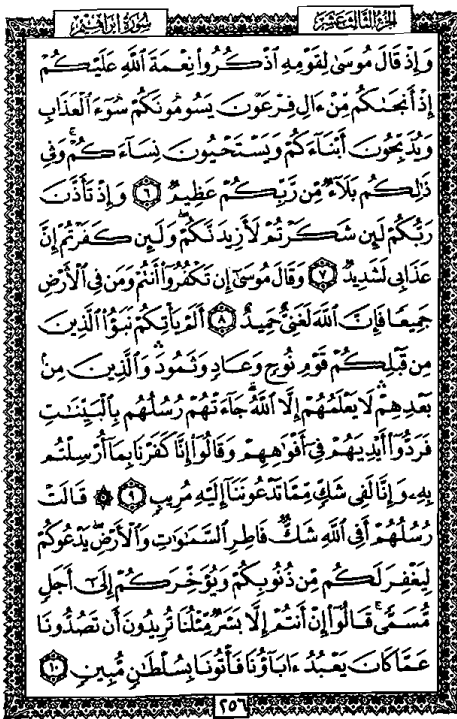 الجزء الثالث عشر
سورة ابراهيم
وَإِذْ قَالَ مُوسَىٰ لِقَوْمِهِ ٱذْكُرُوا۟ نِعْمَةَ ٱللَّهِ عَلَيْكُمْ
إِذْ أَنجَىٰكُم مِّنْ ءَالِ فِرْعَوْنَ يَسُومُونَكُمْ سُوٓءَ ٱلْعَذَابِ
وَيُذَبِّحُونَ أَبْنَآءَكُمْ وَيَسْتَحْيُونَ نِسَآءَكُمْ ۚ وَفِى
ذَٰلِكُم بَلَآءٌ مِّن رَّبِّكُمْ عَظِيمٌ ٦ وَإِذْ تَأَذَّنَ
رَبُّكُمْ لَئِن شَكَرْتُمْ لَأَزِيدَنَّكُمْ ۖ وَلَئِن كَفَرْتُمْ إِنَّ
عَذَابِى لَشَدِيدٌ ٧ وَقَالَ مُوسَىٰٓ إِن تَكْفُرُوٓا۟ أَنتُمْ وَمَن فِى ٱلْأَرْضِ
جَمِيعًا فَإِنَّ ٱللَّهَ لَغَنِىٌّ حَمِيدٌ ٨ أَلَمْ يَأْتِكُمْ نَبَؤُا۟ ٱلَّذِينَ
مِن قَبْلِكُمْ قَوْمِ نُوحٍ وَعَادٍ وَثَمُودَ ۛ وَٱلَّذِينَ مِنۢ
بَعْدِهِمْ ۛ لَا يَعْلَمُهُمْ إِلَّا ٱللَّهُ ۚ جَآءَتْهُمْ رُسُلُهُم بِٱلْبَيِّنَـٰتِ
فَرَدُّوٓا۟ أَيْدِيَهُمْ فِىٓ أَفْوَٰهِهِمْ وَقَالُوٓا۟ إِنَّا كَفَرْنَا بِمَآ أُرْسِلْتُم
بِهِۦ وَإِنَّا لَفِى شَكٍّ مِّمَّا تَدْعُونَنَآ إِلَيْهِ مُرِيبٍ ٩ ۞ قَالَتْ
رُسُلُهُمْ أَفِى ٱللَّهِ شَكٌّ فَاطِرِ ٱلسَّمَـٰوَٰتِ وَٱلْأَرْضِ ۖ يَدْعُوكُمْ
لِيَغْفِرَ لَكُم مِّن ذُنُوبِكُمْ وَيُؤَخِّرَكُمْ إِلَىٰٓ أَجَلٍ
مُّسَمًّى ۚ قَالُوٓا۟ إِنْ أَنتُمْ إِلَّا بَشَرٌ مِّثْلُنَا تُرِيدُونَ أَن تَصُدُّونَا
عَمَّا كَانَ يَعْبُدُ ءَابَآؤُنَا فَأْتُونَا بِسُلْطَـٰنٍ مُّبِينٍ ١٠
٢٥٦